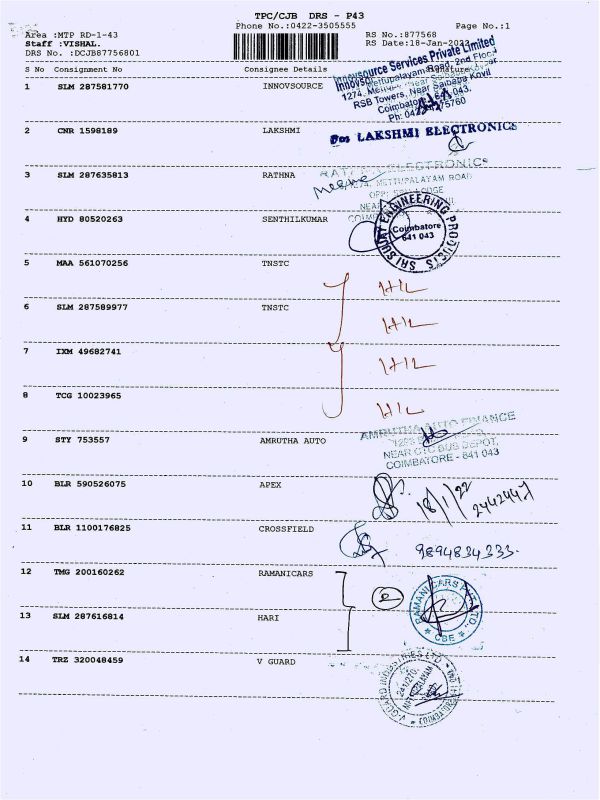 TPC/CJB DRS - P43
Area :MTP RD-1-43 Phone No.:0422-3505555 Page No.:1
Staff :VISHAL. RS No.:877568
DRS No. :DCJB87756801 RS Date:18-Jan-2023
S No Consignment No Consignee Details Signature
1 SLM 287581770 INNOVSOURCE
Innovsource Services Private Limited
1274, Mettupalayam Road, 2nd Floor
RSB Towers, Near Saibaba Kovil
Coimbatore 641 043.
2 CNR 1598189 LAKSHMI
For LAKSHMI ELECTRONICS
3 SLM 287635813 RATHNA
RATHNA ELECTRONICS
1274, METTUPALAYAM ROAD
Meena
4 HYD 80520263 SENTHILKUMAR
SRI SUJAY ENGINEERING PRODUCTS
Coimbatore
641 043
5 MAA 561070256 TNSTC
6 SLM 287589977 TNSTC
7 IXM 49682741
8 TCG 10023965
9 STY 753557 AMRUTHA AUTO
AMRUTHA AUTO FINANCE
NEAR CTC BUS DEPOT,
COIMBATORE - 641 043
10 BLR 590526075 APEX
18/1/22
11 BLR 1100176825 CROSSFIELD
9894834333.
12 TMG 200160262 RAMANICARS
RAMANI CARS
CBE
13 SLM 287616814 HARI
14 TRZ 320048459 V GUARD
V-GUARD INDUSTRIES LTD